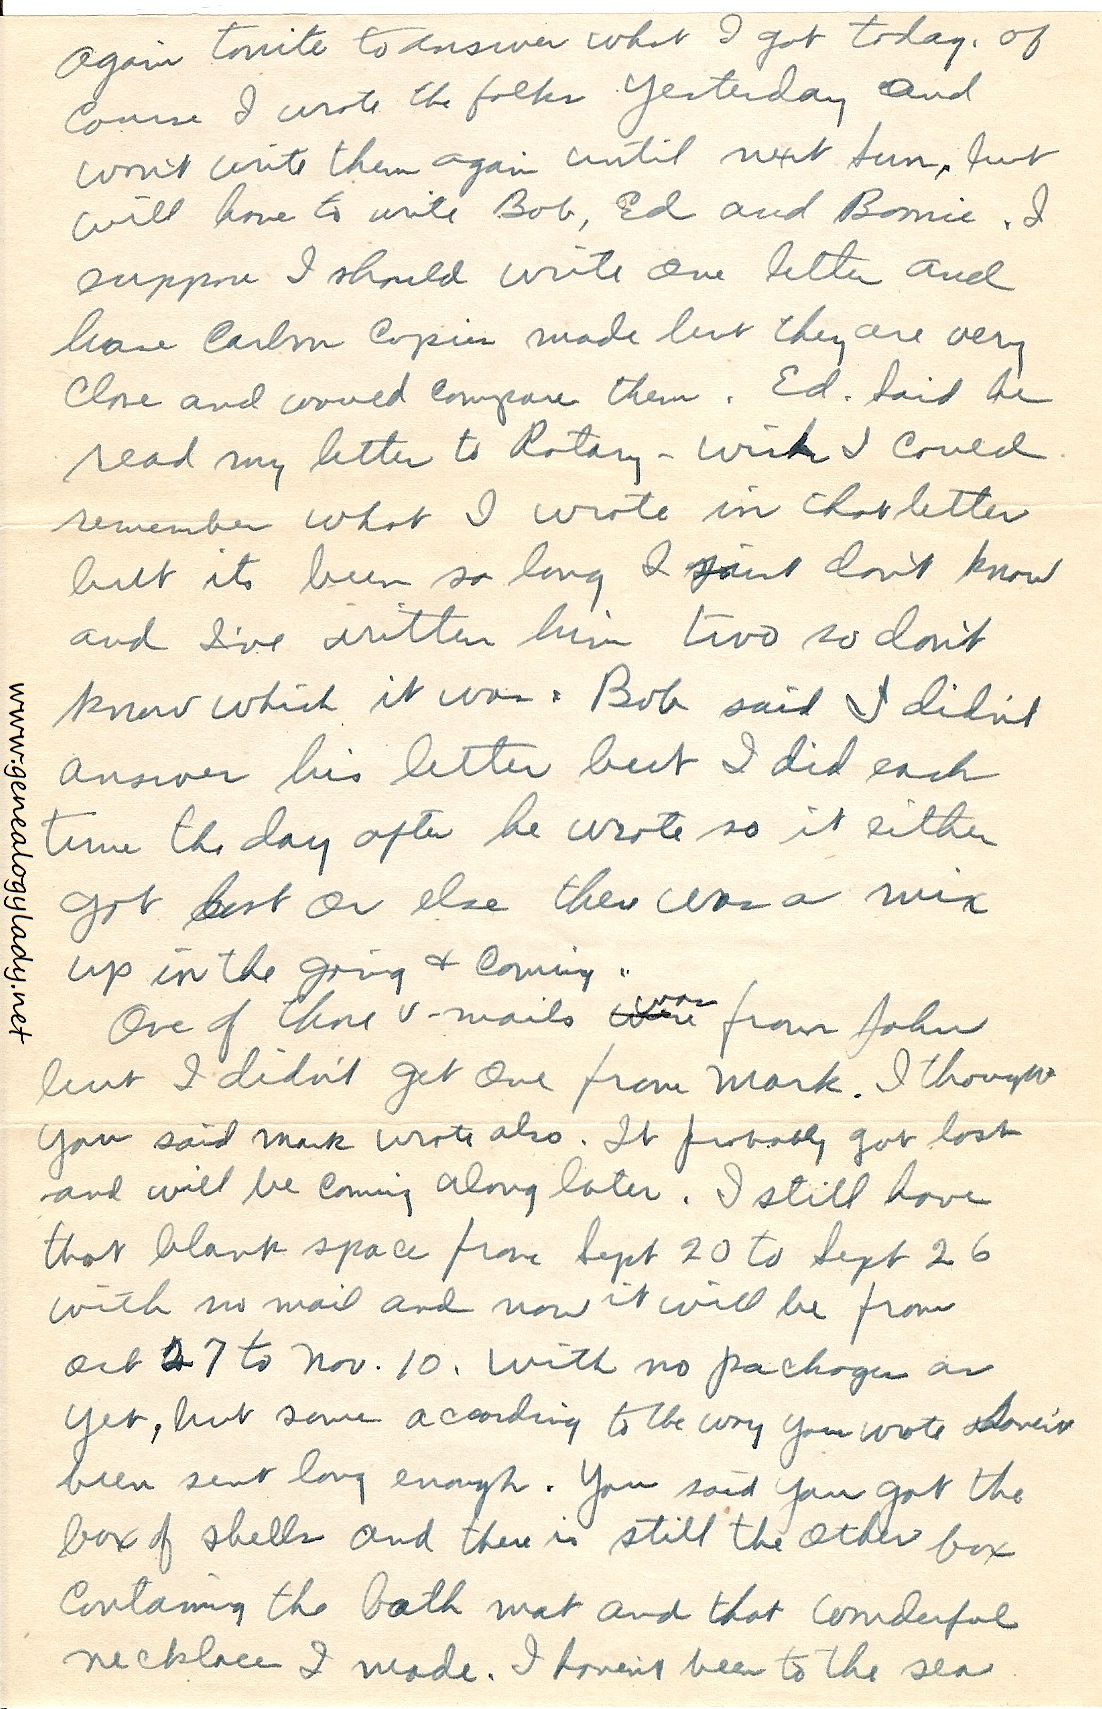 again tonite to answer what I got today. of
course I wrote the folks yesterday and
won't write them again until next Sun, but
will have to write Bob, Ed and Bonnie. I
suppose I should write one letter and
have Carbon Copies made but they are very
close and would compare them. Ed. said he
read my letter to Rotary - wish I could
remember what I wrote in that letter
but its been so long I just don't know
and I've written him two so don't
know which it was. Bob said I didn't
answer his letter but I did each
time the day after he wrote so it either
got lost or else there was a mix
up in the going & coming.
One of those V-mails was from John
but I didn't get one from Mark. I thought
you said Mark wrote also. It probably got lost
and will be coming along later. I still have
that blank space from Sept 20 to Sept 26
with no mail and now it will be from
Oct 27 to Nov. 10. With no packages as
yet, but some according to the way you wrote haven't
been sent long enough. You said you got the
box of shells and there is still the other box
containing the bath mat and that wonderful
necklace I made. I haven't been to the sea
www.genealogylady.net